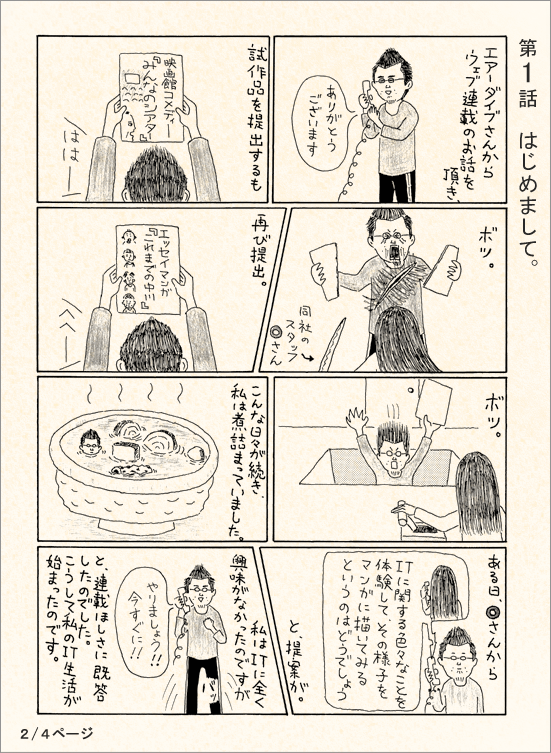 第1話 はじめまして。
エアーダイブさんから
ウェブ連載のお話を
頂き、
ありがとう
ございます
試作品を提出するも
映画館コメディー
『みんなのシアター』
ははーー
ボツ。
同社の
スタッフ
◎さん
再び提出。
エッセイマンガ
『これまでの中川』
へへーー
ボツ。
こんな日々が続き、
私は煮詰まっていました。
ある日、◎さんから
ITに関する色々なことを
体験して、その様子を
マンガに描いてみる
というのはどうでしょう
と、提案が。
私はITに全く
興味がなかったのですが
やりましょう!!
今すぐに!!
バッ
と、連載ほしさに既答
したのでした。
こうして私のIT生活が
始まったのです。
2/4ページ